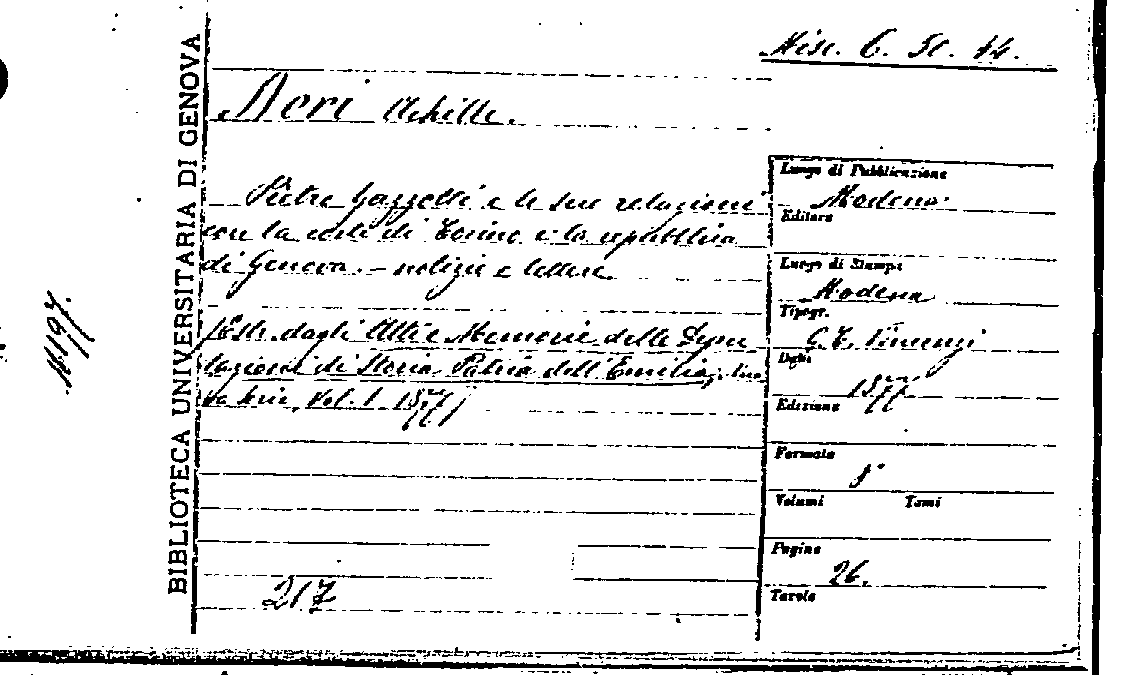 Misc. C. 50. 14.
Neri Achille.
BIBLIOTECA UNIVERSITARIA DI GENOVA
Pietro Gazzotti e le sue relazioni
con la corte di Torino e la repubblica
di Genova. - notizie e lettere.
(Estr. dagli Atti e Memorie delle Depu
tazioni di Storia Patria dell'Emilia,
serie, Vol. I 1877)
217
Luogo di Pubblicazione
Modena.
Editore
Luogo di Stampa
Modena
Tipogr.
G. T. Vincenzi
Data
1877
Edizione
Formato
8°
Volumi Tomi
Pagine
26.
Tavole